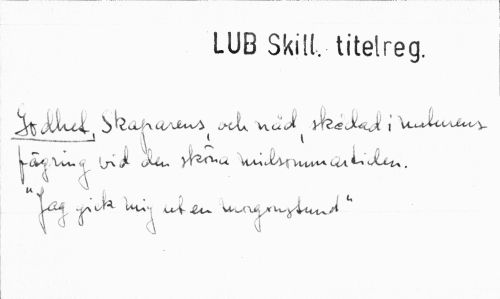 LUB Skill. titelreg.
Godhet, Skaparens, och nåd, skådad i naturens
fägring vid den sköna midsommartiden.
"Jag gick mig ut en morgonstund"